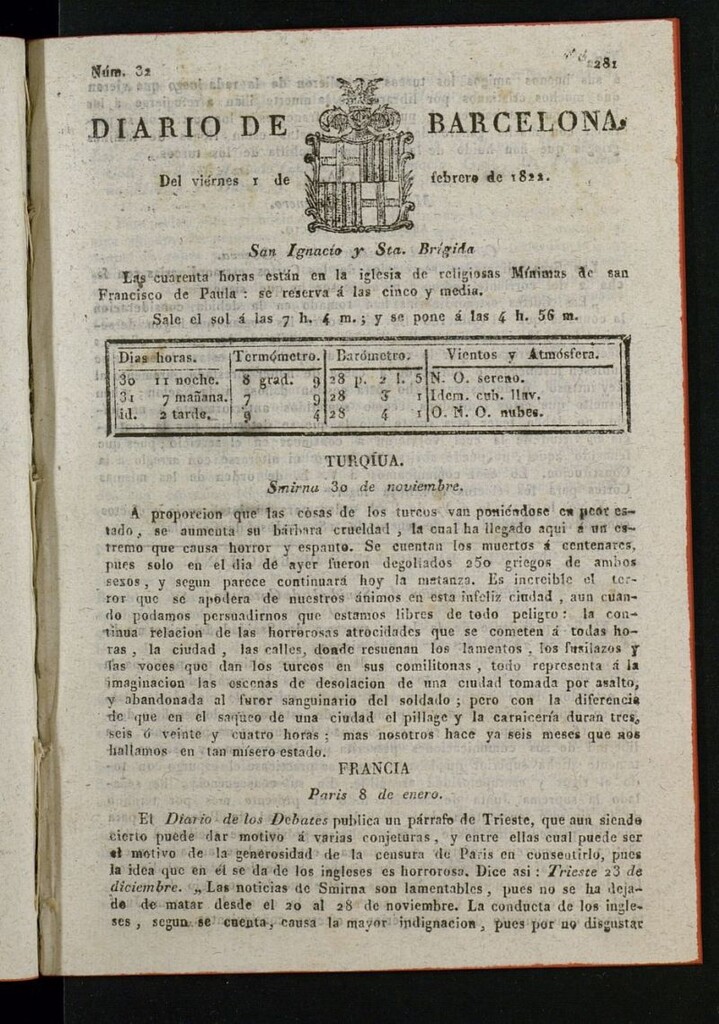 Núm. 32
281
DIARIO DE BARCELONA,
Del viérnes 1 de febrero de 1822.
San Ignacio y Sta. Brígida
Las cuarenta horas están en la iglesia de religiosas Mínimas de san
Francisco de Paula : se reserva á las cinco y media.
Sale el sol á las 7 h. 4 m.; y se pone á las 4 h. 56 m.
Dias horas. Termómetro. Barómetro. Vientos y Atmósfera.
30 11 noche. 8 grad. 9 28 p. 2 l. 5 N. O. sereno.
31 7 mañana. 7 9 28 3 1 Idem. cub. lluv.
id. 2 tarde. 9 4 28 4 1 O. N. O. nubes.
TURQÍUA.
Smirna 30 de noviembre.
A proporcion que las cosas de los turcos van poniéndose en peor es-
tado, se aumenta su bárbara crueldad, la cual ha llegado aqui á un es-
tremo que causa horror y espanto. Se cuentan los muertos á centenares,
pues solo en el dia de ayer fueron degollados 250 griegos de ambos
sexos, y segun parece continuará hoy la matanza. Es increible el ter-
ror que se apodera de nuestros ánimos en esta infeliz ciudad, aun cuan-
do podamos persuadirnos que estamos libres de todo peligro: la con-
tinua relacion de las horrorosas atrocidades que se cometen á todas ho-
ras, la ciudad, las calles, donde resuenan los lamentos, los fusilazos y
las voces que dan los turcos en sus comilitonas, todo representa á la
imaginacion las escenas de desolacion de una ciudad tomada por asalto,
y abandonada al furor sanguinario del soldado; pero con la diferencia
de que en el saqueo de una ciudad el pillage y la carnicería duran tres,
seis ó veinte y cuatro horas; mas nosotros hace ya seis meses que nos
hallamos en tan mísero estado.
FRANCIA
Paris 8 de enero.
El Diario de los Debates publica un párrafo de Trieste, que aun siendo
cierto puede dar motivo á varias conjeturas, y entre ellas cual puede ser
el motivo de la generosidad de la censura de Paris en consentirlo, pues
la idea que en él se da de los ingleses es horrorosa. Dice asi: Trieste 23 de
diciembre. „Las noticias de Smirna son lamentables, pues no se ha deja-
do de matar desde el 20 al 28 de noviembre. La conducta de los ingle-
ses, segun se cuenta, causa la mayor indignacion, pues por no disgustar